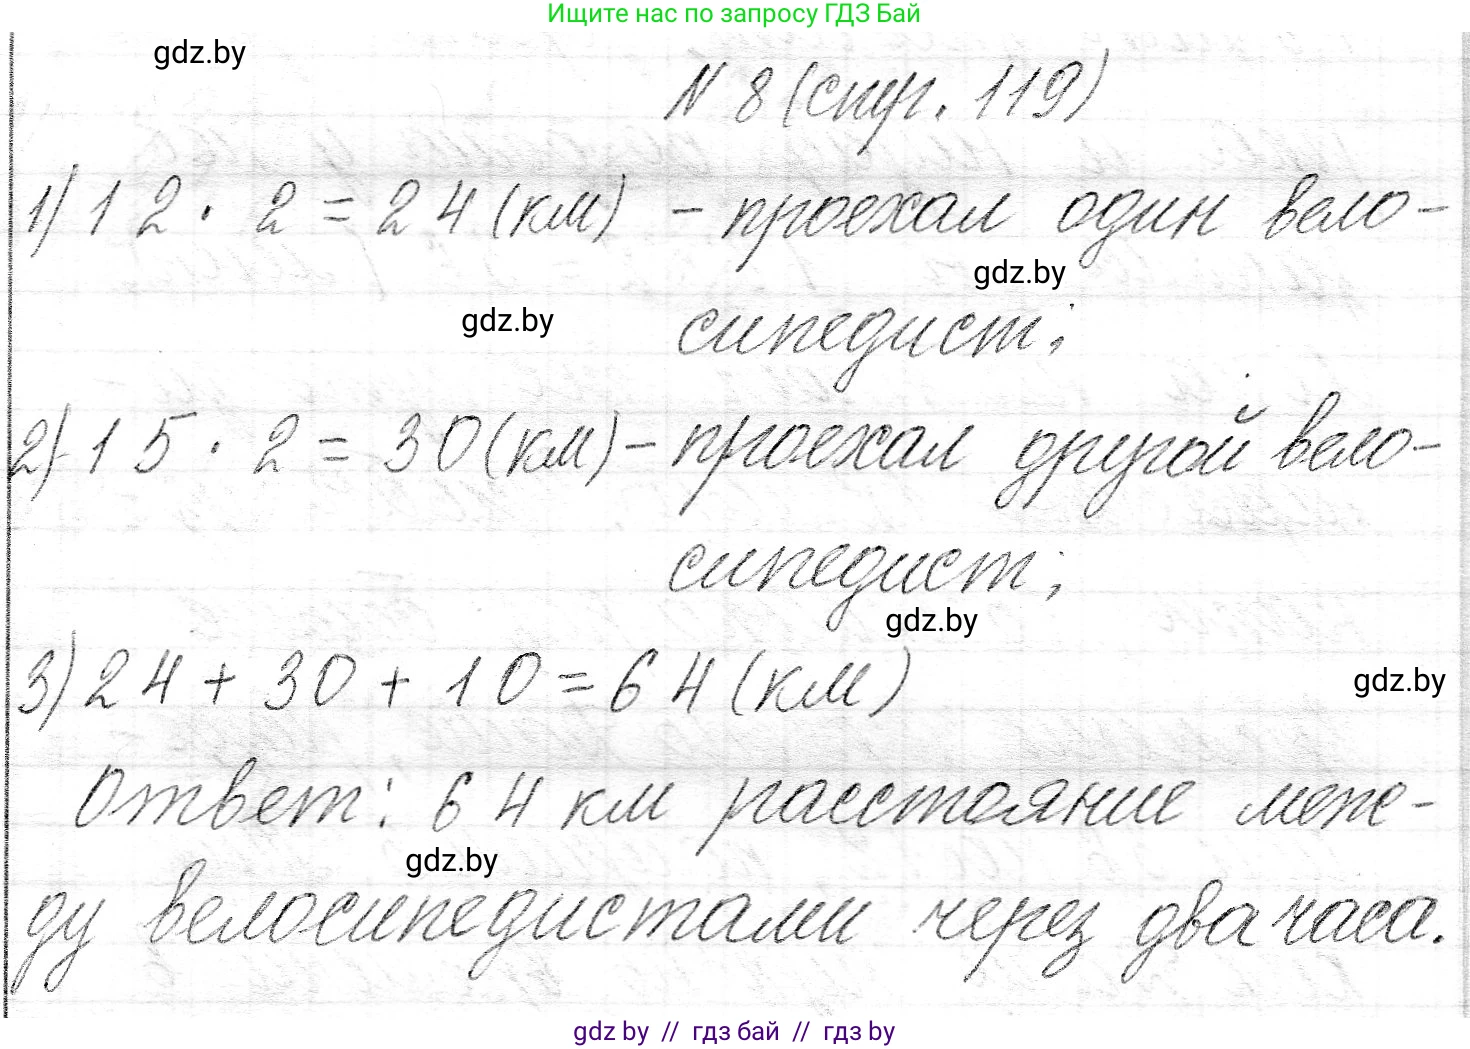 Ищите нас по запросу ГДЗ Бай
gdz.by
N 8 (стр. 119)
1) 12 · 2 = 24 (км) - проехал один вело-
gdz.by
сипедист;
gdz.by
2) 15 · 2 = 30 (км) - проехал другой вело-
сипедист;
gdz.by
3) 24 + 30 + 10 = 64 (км)
gdz.by
Ответ: 64 км расстояние меж-
gdz.by
ду велосипедистами через два часа.
gdz.by // гдз бай // гдз by